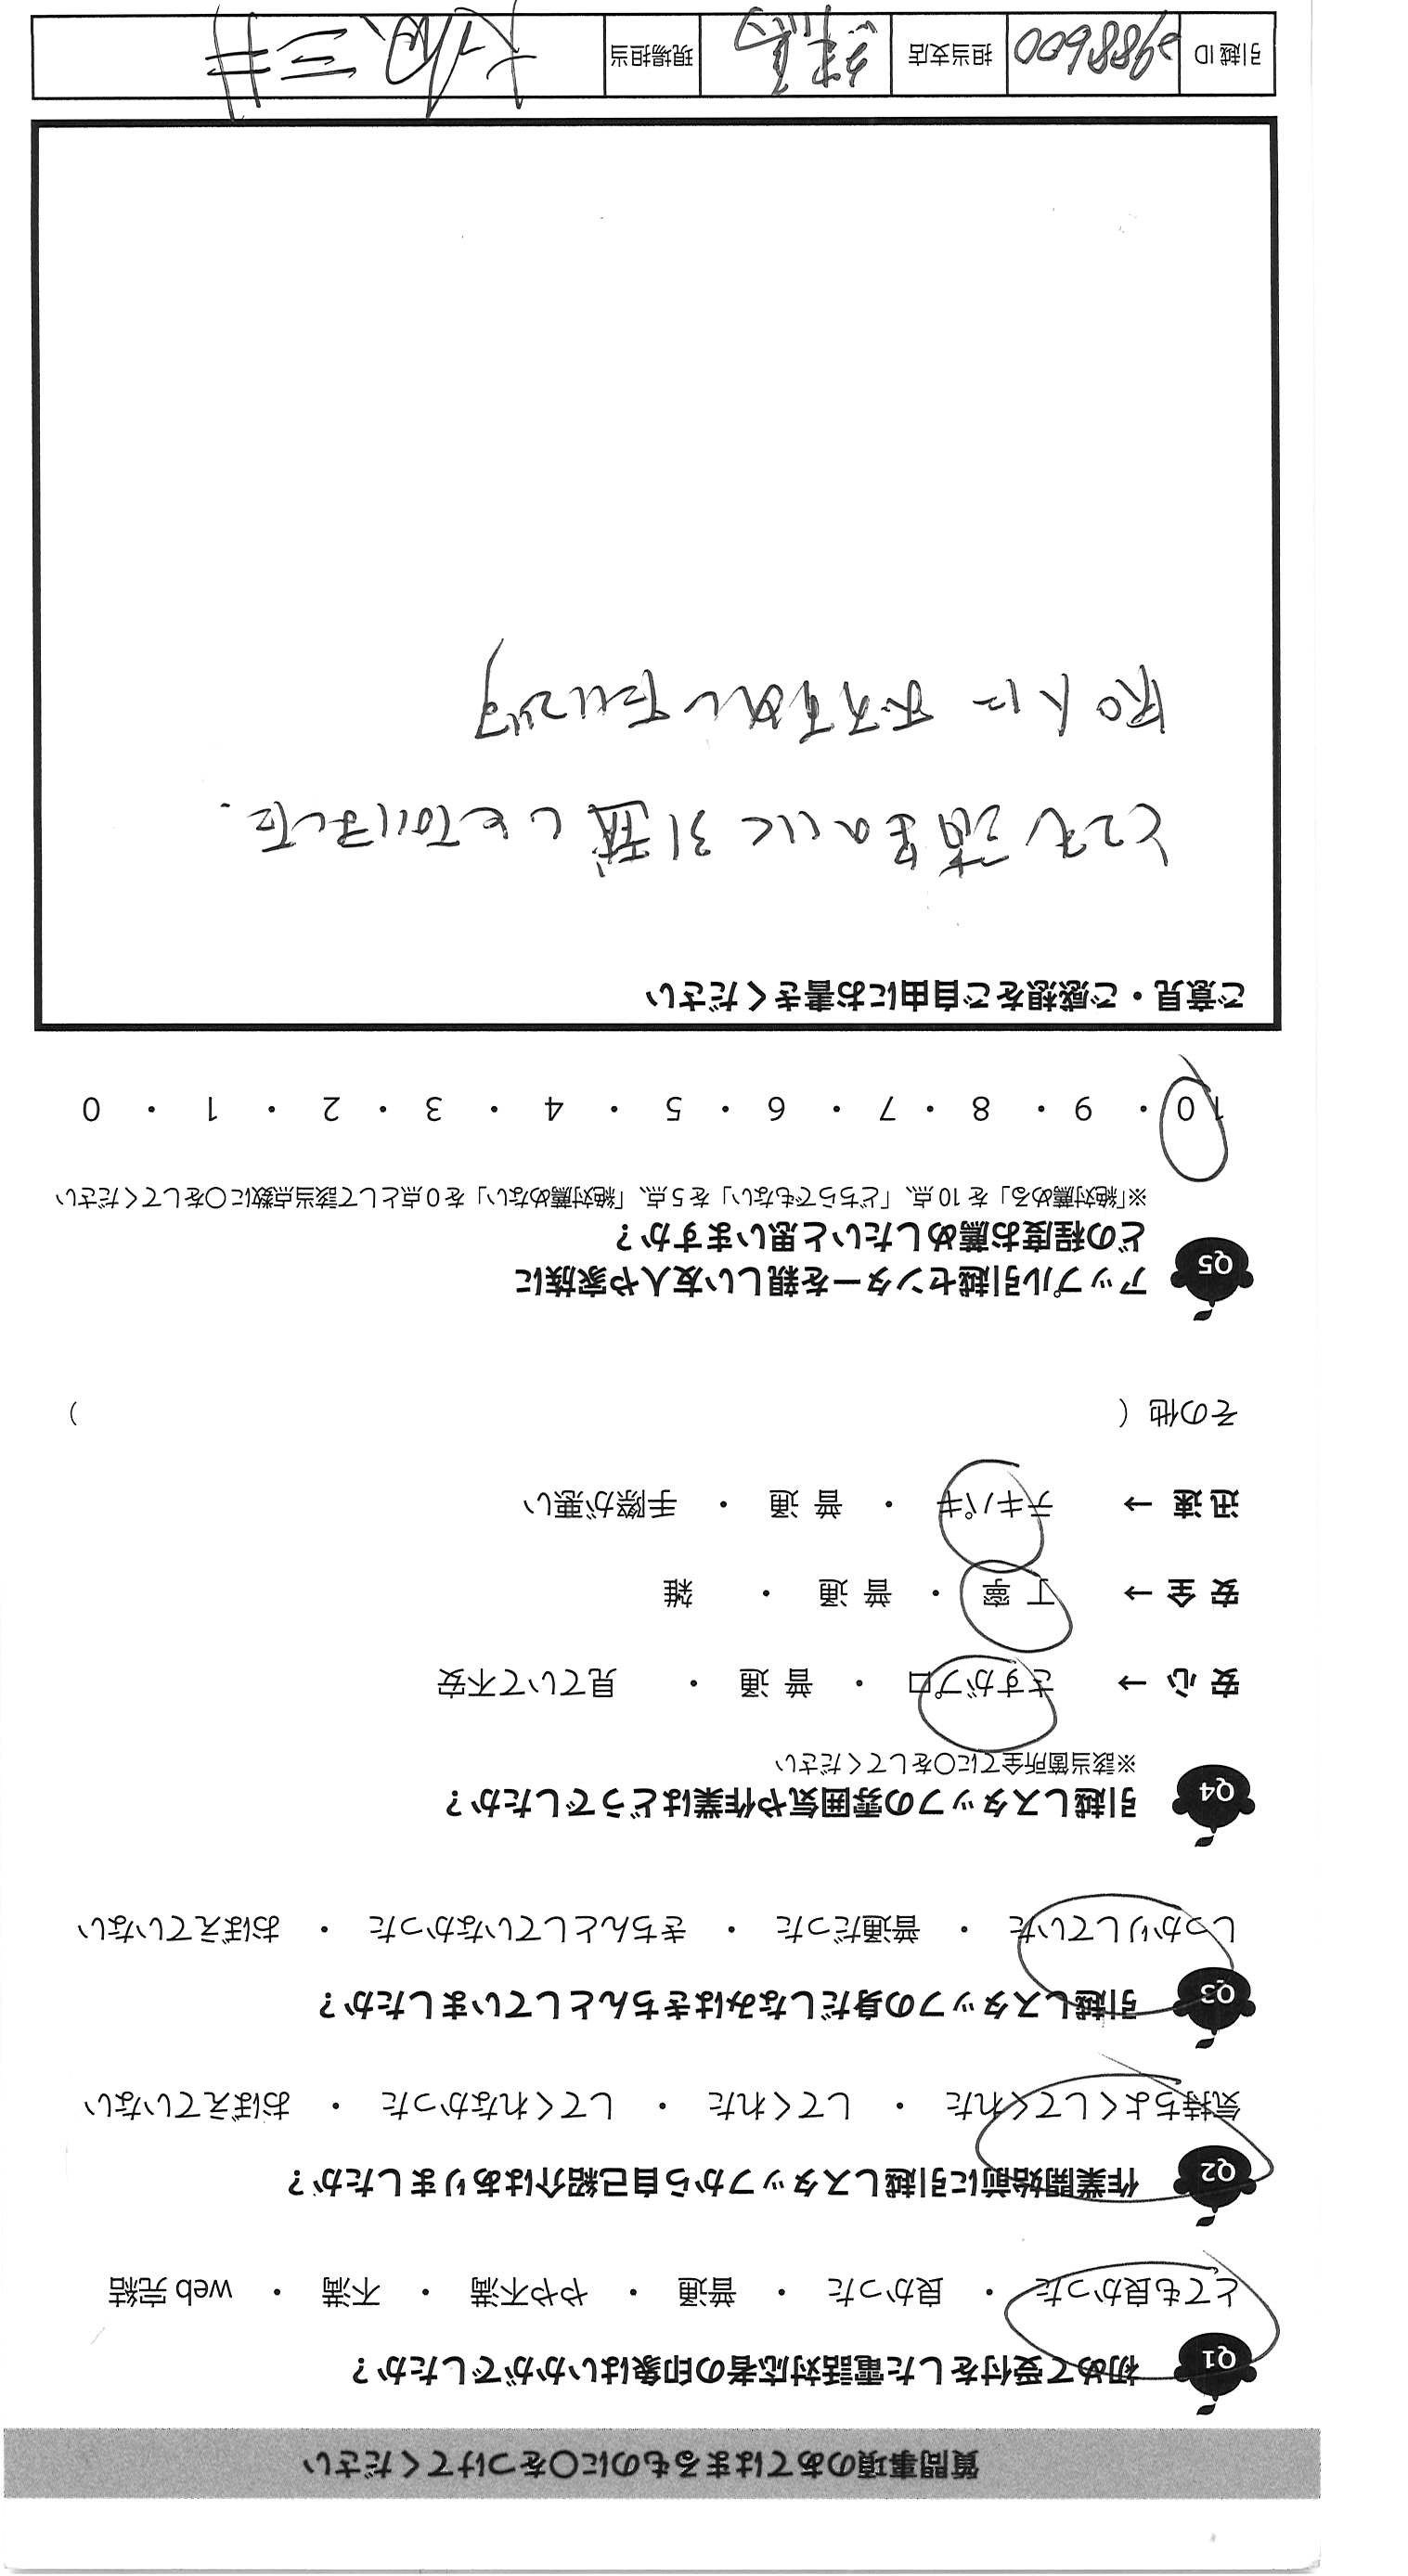 質問事項のあてはまるものに○をつけてください
Q1 初めて受付をした電話対応者の印象はいかがでしたか？
とても良かった ・ 良かった ・ 普通 ・ やや不満 ・ 不満 ・ web 完結
Q2 作業開始前に引越しスタッフから自己紹介はありましたか？
気持ちよくしてくれた ・ してくれた ・ してくれなかった ・ おぼえていない
Q3 引越しスタッフの身だしなみはきちんとしていましたか？
しっかりしていた ・ 普通だった ・ きちんとしていなかった ・ おぼえていない
Q4 引越しスタッフの雰囲気や作業はどうでしたか？
※該当箇所全てに○をしてください
安 心 → さすがプロ ・ 普 通 ・ 見ていて不安
安 全 → 丁 寧 ・ 普 通 ・ 雑
迅 速 → テキパキ ・ 普 通 ・ 手際が悪い
その他（ ）
Q5 アップル引越センターを親しい友人や家族に
どの程度お薦めしたいと思いますか？
※「絶対薦める」を 10 点、「どちらでもない」を 5 点、「絶対薦めない」を 0 点として該当点数に○をしてください
10 ・ 9 ・ 8 ・ 7 ・ 6 ・ 5 ・ 4 ・ 3 ・ 2 ・ 1 ・ 0
ご意見・ご感想をご自由にお書きください
とても 引越しを
知人に おすすめしたいです
引越 ID 担当支店 現場担当 三井